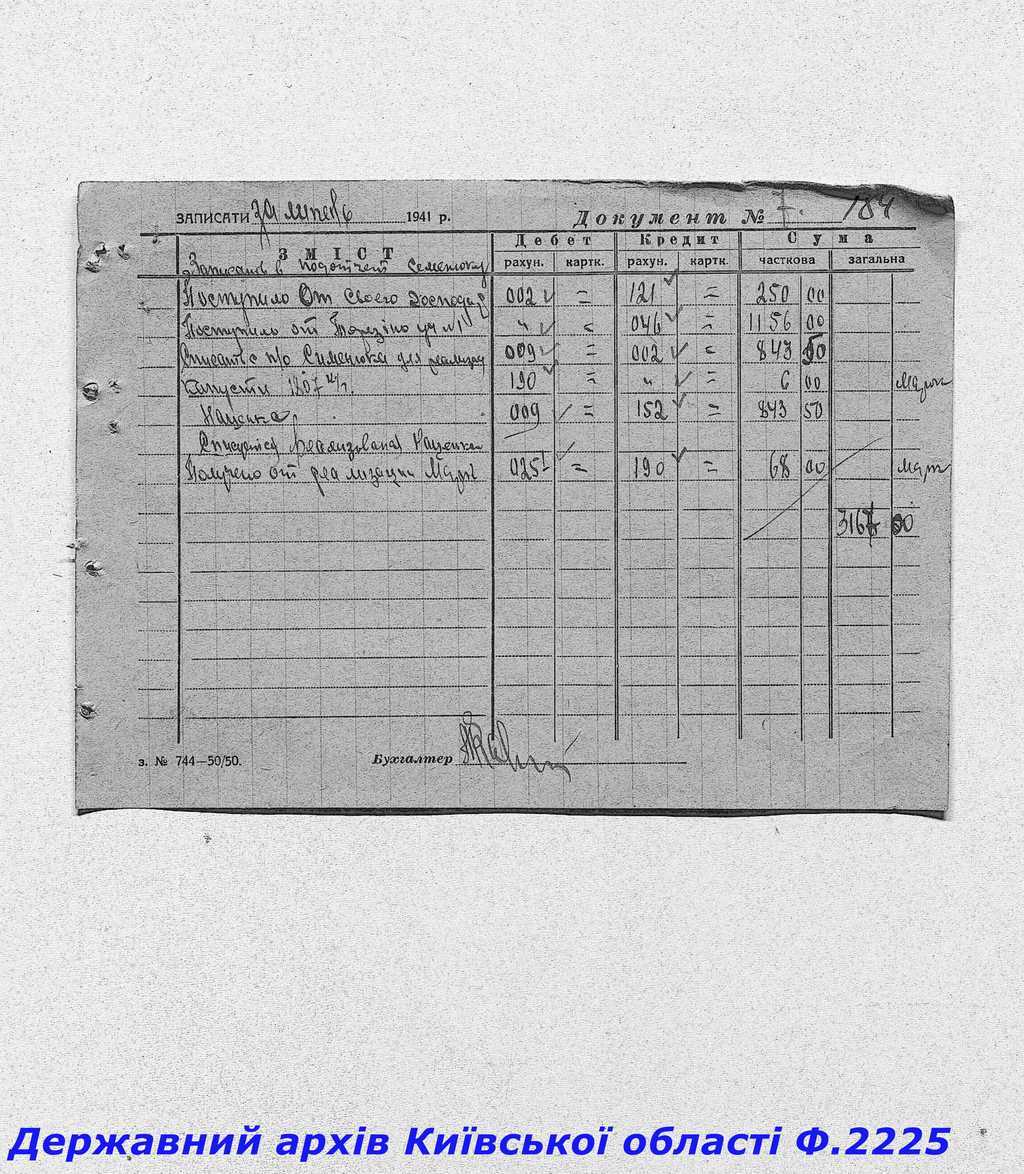 ЗАПИСАТИ за липень 1941 р. Документ № 7. 184
ЗМІСТ Дебет Кредит Сума
рахун. картк. рахун. картк. часткова загальна
Записать в подотчет Семенюку
Поступило от своего господар 002 = 121 = 250 00
Поступило от уч №1 " = 046 = 1156 00
Списать с п/о Семенюка для реализац 009 = 002 = 843 50
Капусти 1807 кг. 190 = " = 6 00 Марж
Наценка 009 = 152 = 843 50
Реализована Наценка
Получено от реализации Марж 025 = 190 = 68 00 Марж
3167 00
з. № 744—50/50. Бухгалтер
Державний архів Київської області Ф.2225